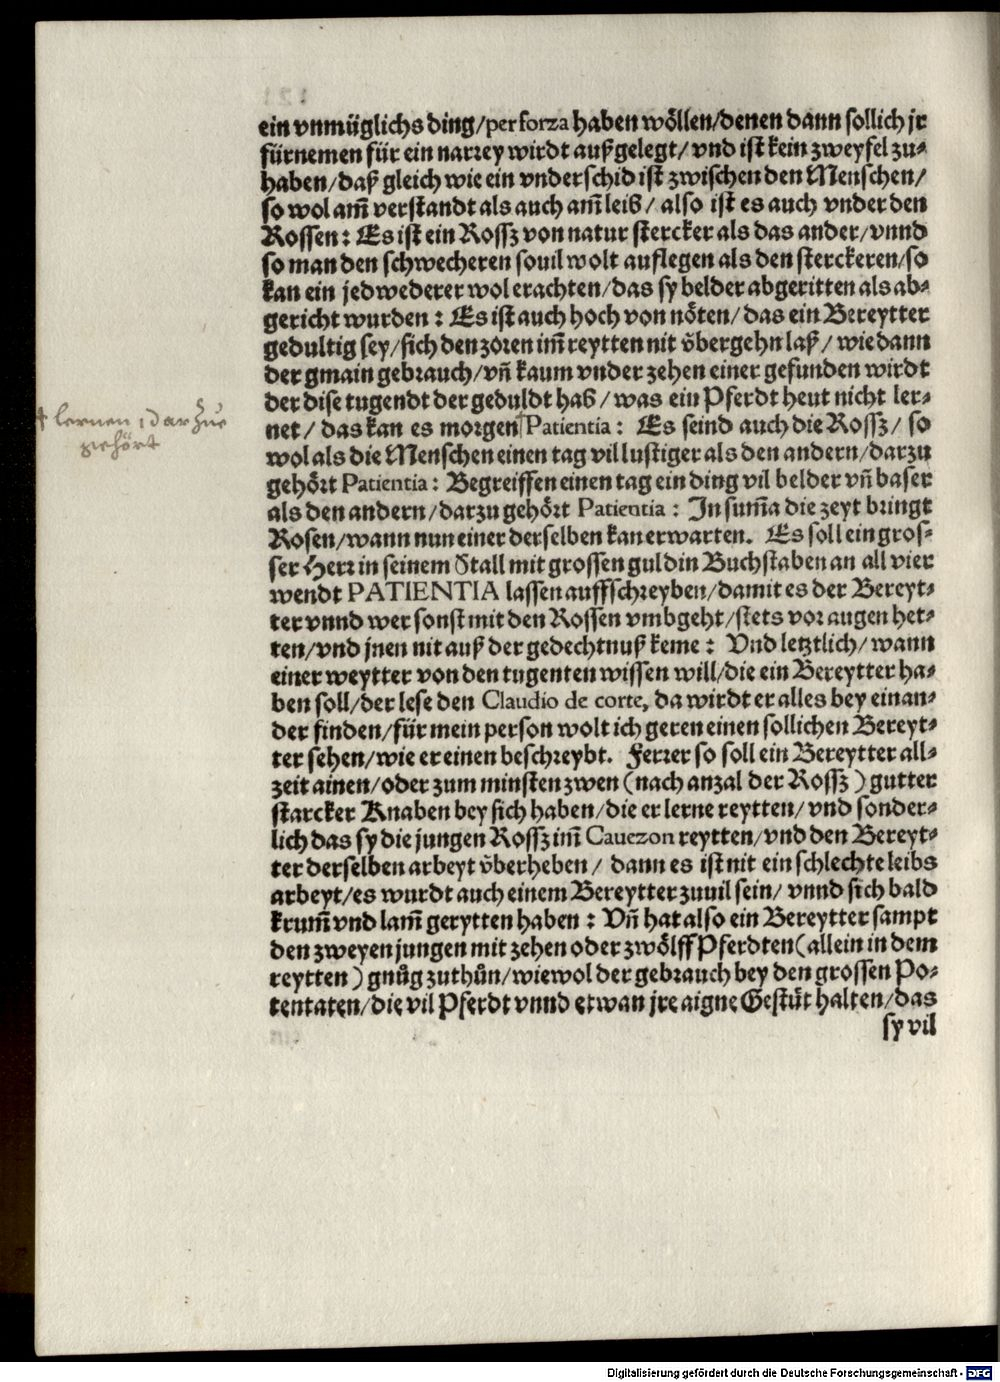 ein vnmüglichs ding/per forza haben wöllen/denen dann sollich jr
fürnemen für ein narrey wirdt außgelegt/ vnd ist kein zweyfel zu-
haben/daß gleich wie ein vnderschid ist zwischen den Menschen/
so wol am̃ verstandt als auch am̃ leib/ also ist es auch vnder den
Rossen: Es ist ein Rossz von natur stercker als das ander/vnnd
so man den schwecheren souil wolt auflegen als den sterckeren/so
kan ein jedwederer wol erachten/das sy belder abgeritten als ab-
gericht wurden: Es ist auch hoch von nöten/das ein Bereytter
gedultig sey/sich den zoren im̃ reytten nit vͤbergehn laß/ wie dann
der gmain gebrauch/vñ kaum vnder zehen einer gefunden wirdt
der dise tugendt der geduldt hab/was ein Pferdt heut nicht ler-
† lernen, darzue
gehört
net/ das kan es morgen Patientia: Es seind auch die Rossz/ so
wol als die Menschen einen tag vil lustiger als den andern/darzu
gehört Patientia: Begreiffen einen tag ein ding vil belder vñ baser
als den andern/darzu gehört Patientia: In sum̃a die zeyt bringt
Rosen/wann nun einer derselben kan erwarten. Es soll ein gros-
ser Herr in seinem Stall mit grossen guldin Buchstaben an all vier
wendt PATIENTIA lassen auffschreyben/damit es der Bereyt-
ter vnnd wer sonst mit den Rossen vmbgeht/stets vor augen het-
ten/vnd jnen nit auß der gedechtnuß keme: Vnd letztlich/wann
einer weytter von den tugenten wissen will/die ein Bereytter ha-
ben soll/der lese den Claudio de corte, da wirdt er alles bey einan-
der finden/für mein person wolt ich geren einen sollichen Bereyt-
ter sehen/wie er einen beschreybt. Ferrer so soll ein Bereytter all-
zeit ainen/oder zum minsten zwen (nach anzal der Rossz) gutter
starcker Knaben bey sich haben/die er lerne reytten/vnd sonder-
lich das sy die jungen Rossz im̃ Cauezon reytten/vnd den Bereyt-
ter derselben arbeyt vͤberheben/ dann es ist nit ein schlechte leibs
arbeyt/es wurdt auch einem Bereytter zuuil sein/ vnnd sich bald
krum̃ vnd lam̃ gerytten haben: Vñ hat also ein Bereytter sampt
den zweyen jungen mit zehen oder zwölff Pferdten(allein in dem
reytten) gnůg zuthůn/wiewol der gebrauch bey den grossen Po-
tentaten/die vil Pferdt vnnd etwan jre aigne Gestüt halten/das
sy vil
Digitalisierung gefördert durch die Deutsche Forschungsgemeinschaft - DFG